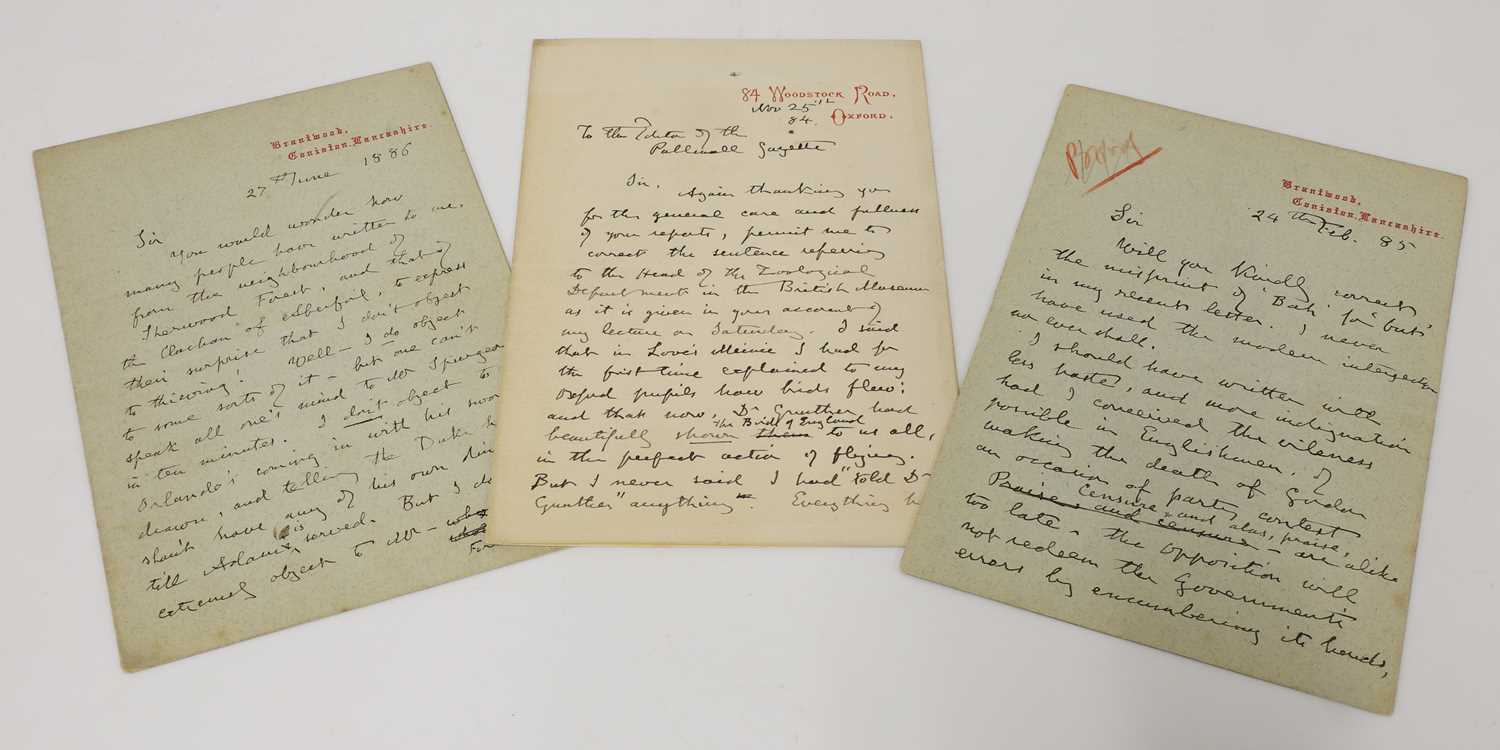 Brantwood,
Coniston, Lancashire.
27th June 1886
Sir
You would wonder how
many people have written to me,
from the neighbourhood of
Sherwood Forest, and that of
the Clachan of Aberfoil, to express
their surprise that I don't object
to thieving! Well - I do object
to some sorts of it - but one can't
speak all one's mind to Mr Spurgeon
in ten minutes. I don't object to
Orlando's coming in with his swor
drawn, and telling the Duke h
shan't have any of his own din
till Adam is served. But I do
extremely object to Mr -
For
84 Woodstock Road,
Oxford.
Nov 25th
84.
To the Editor of the
Pallmall Gazette
Sir, Again thanking you
for the general care and fullness
of your reports, permit me to
correct the sentence referring
to the Head of the Zoological
Department in the British Museum
as it is given in your account of
my lecture on Saturday. I said
that in Love's Meinie I had for
the first time explained to my
Oxford pupils how birds flew:
and that now, Dr Gunther had
The Birds of England
beautifully shown them to us all,
in the perfect action of flying.
But I never said I had "told Dr
Gunther" anything. Everything h
Brantwood,
Coniston, Lancashire.
24th Feb. 85
Sir
Will you kindly correct
the misprint of 'Bah' for 'but'
in my recent letter. I never
have used the modern interjection
nor ever shall.
I should have written with
less haste, and more indignation
had I conceived the vileness
possible in Englishmen, of
making the death of Gordon
an occasion of party contest
Censure and alas, praise,
Praise and censure - are alike
too late - the opposition will
not redeem the Government's
errors by encumbering its hands,